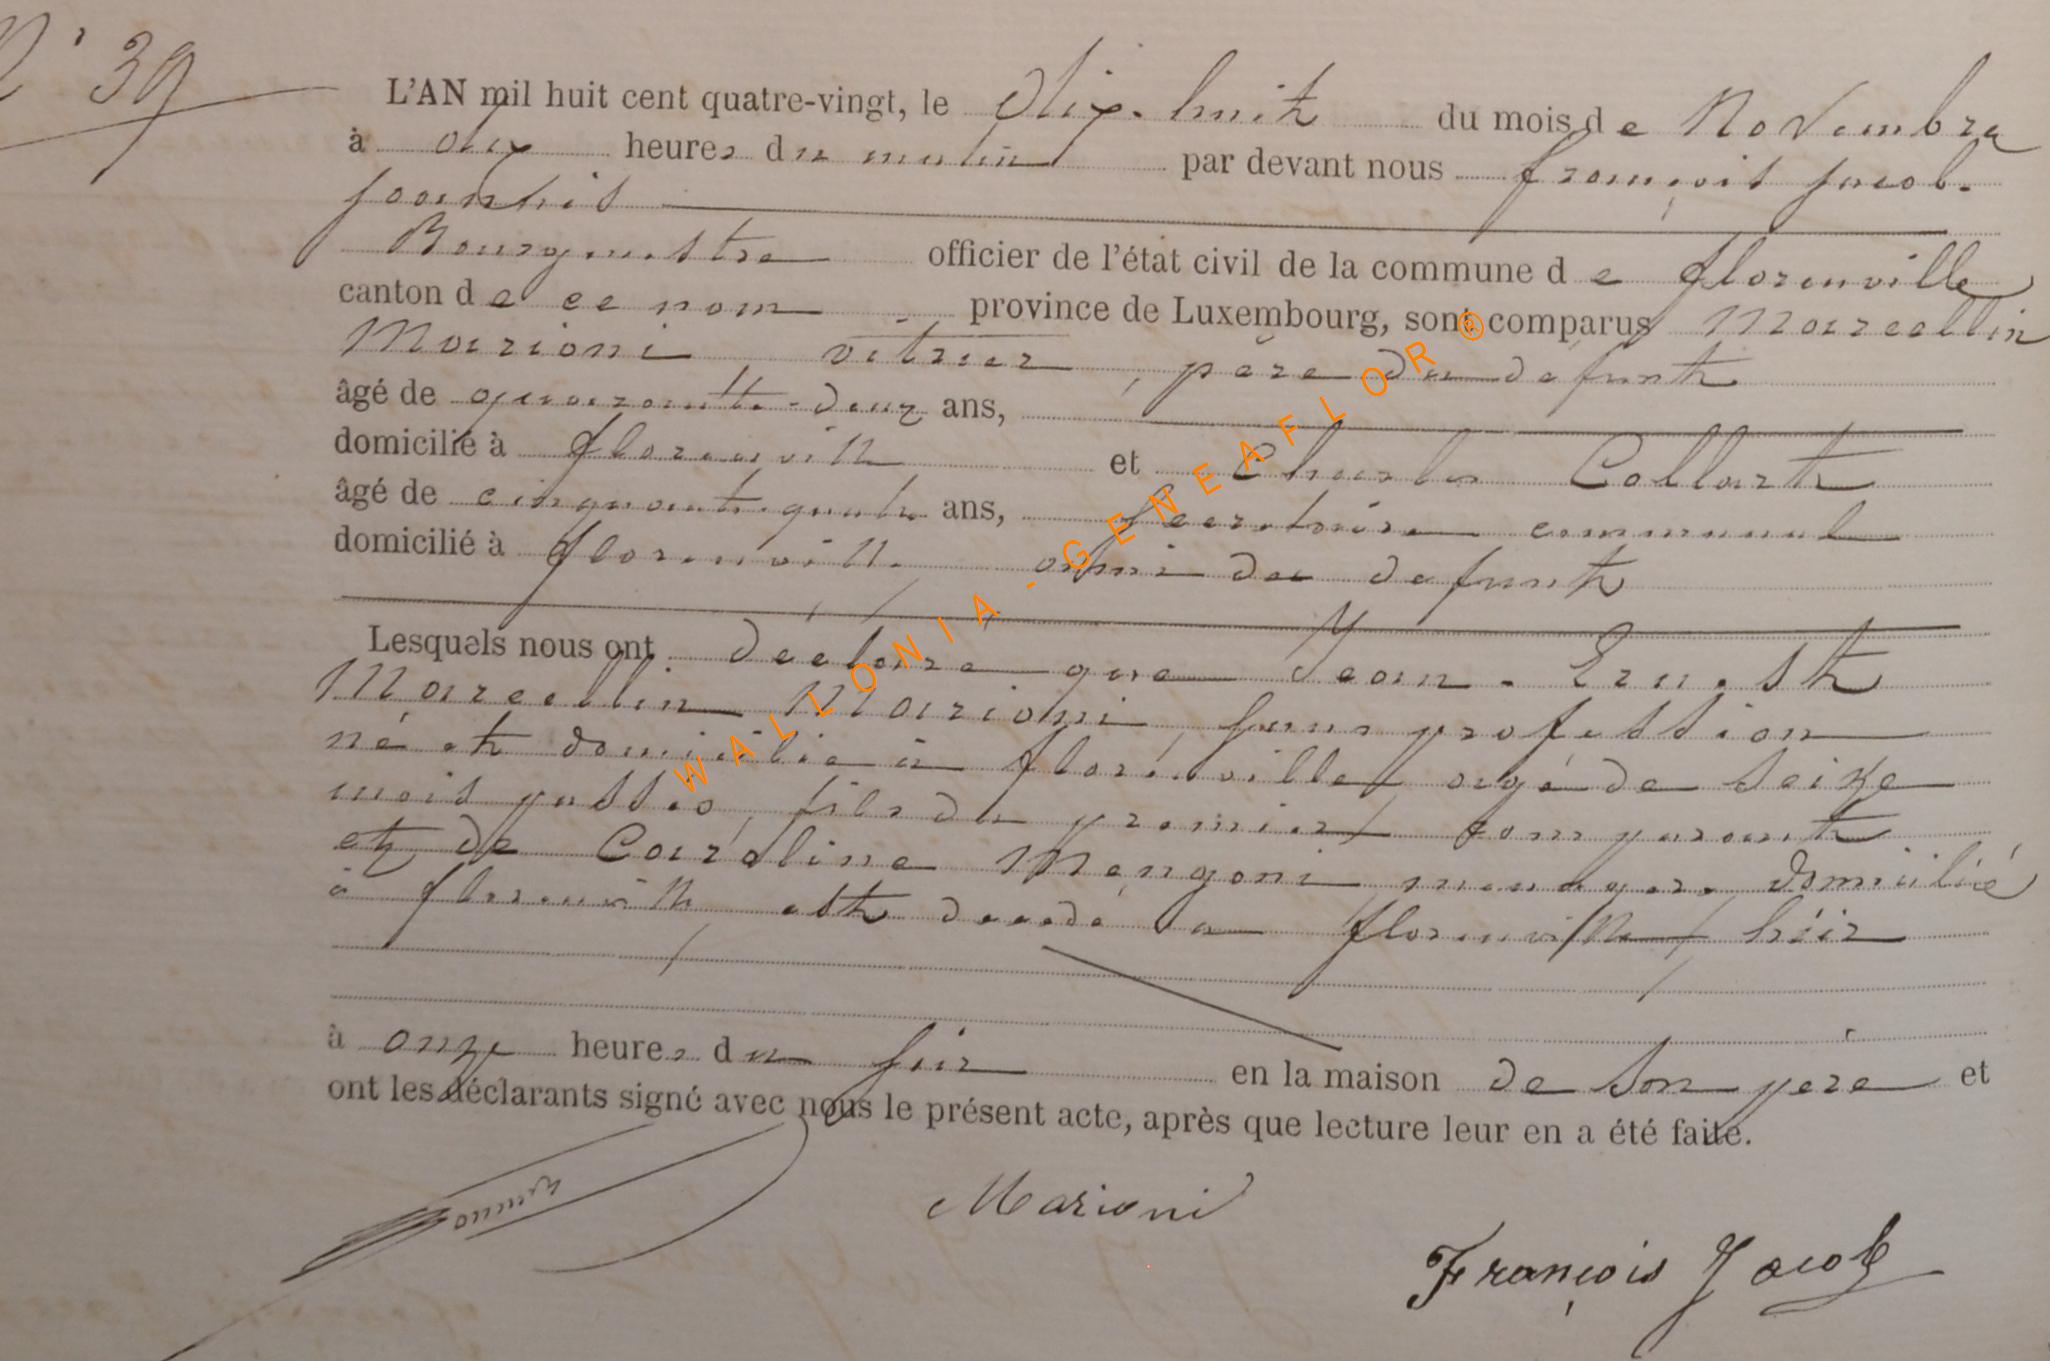 N° 39
L'AN mil huit cent quatre-vingt, le dix-huit du mois de Novembre
à dix heures du matin par devant nous françois jacob-
Bourgmestre officier de l'état civil de la commune de florenville
canton de ce nom province de Luxembourg, sont comparus Marcellin
Marioni vitrier, père du défunt
âgé de quarante-deux ans,
domicilié à florenville et Charles Collart
âgé de cinquante-quatre ans, secrétaire communal
domicilié à florenville, ami du defunt
Lesquels nous ont déclaré que Jean-Ernest
Marcellin Marioni, sans profession
né et domicilié à florenville, agé de seize
mois passés, fils du premier comparant
et de Caroline Mengoni menagere domiciliée
à florenville est décédé a florenville, hier
à onze heures du soir en la maison de son père et
ont les déclarants signé avec nous le présent acte, après que lecture leur en a été faite.
Marioni
François Jacob
WALLONIA-GENEAFLOR®